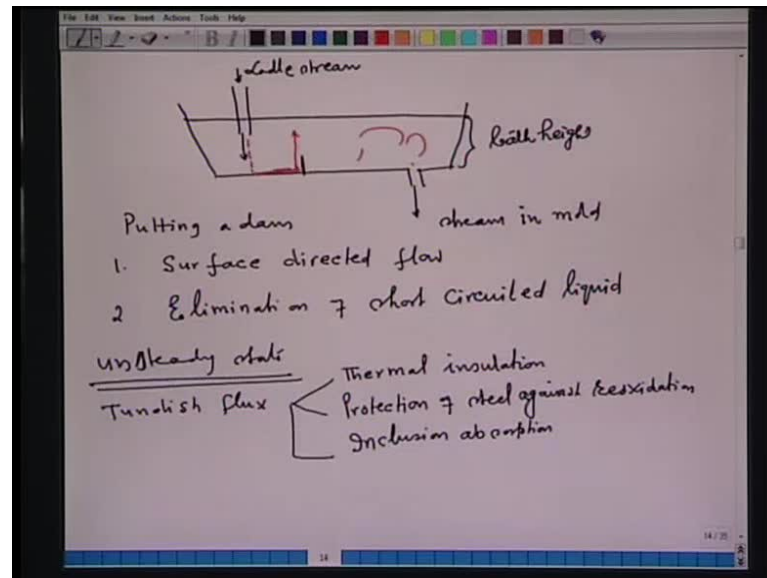 File Edit View Insert Actions Tools Help
B I
Ladle stream
bath height
stream in mld
Putting a dam
1. Surface directed flow
2 Elimination of short circuited liquid
unsteady state
Tundish flux
Thermal insulation
Protection of steel against reoxidation
Inclusion absorption
14/35
14